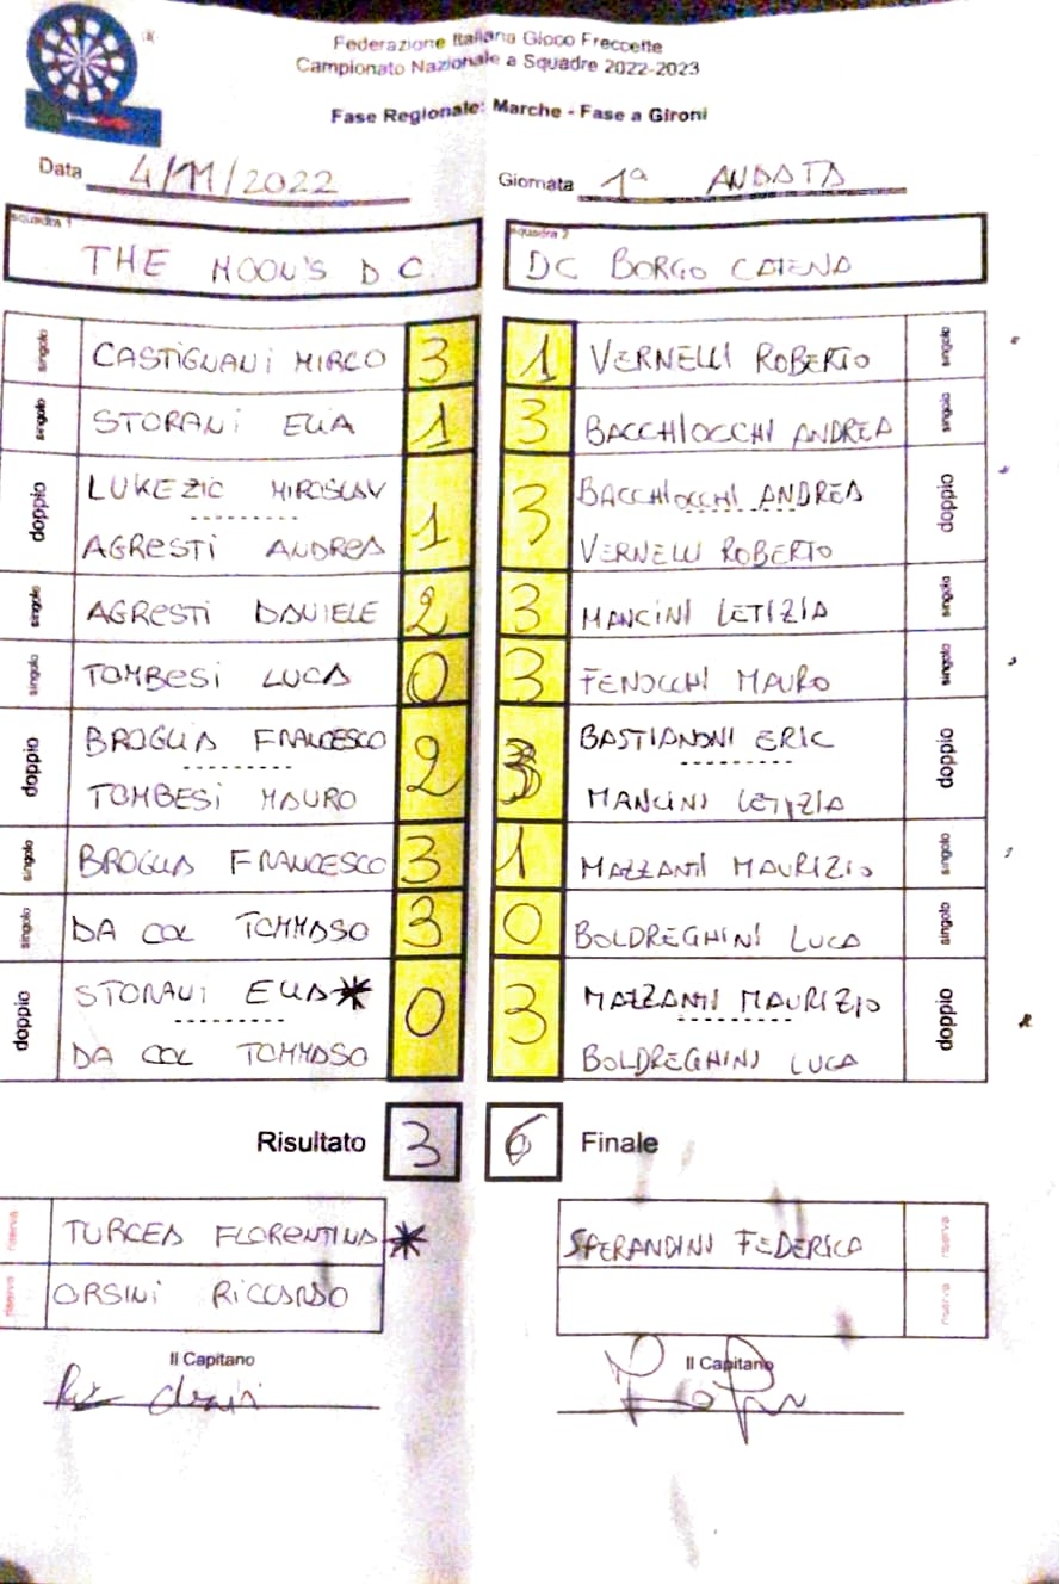 Federazione Italiana Gioco Freccette
Campionato Nazionale a Squadre 2022-2023
Fase Regionale: Marche - Fase a Gironi
Data 4/11/2022 Giornata 1ª ANDATA
squadra 1 squadra 2
THE MOON'S D C. DC BORGO CATENA
singolo CASTIGNANI MIRCO 3 1 VERNELLI ROBERTO singolo
singolo STORANI ELIA 1 3 BACCHIOCCHI ANDREA singolo
doppio LUKEZIC MIROSLAV 1 3 BACCHIOCCHI ANDREA doppio
AGRESTI ANDREA VERNELLI ROBERTO
singolo AGRESTI DANIELE 2 3 MANCINI LETIZIA singolo
singolo TOMBESI LUCA 0 3 FENOCCHI MAURO singolo
doppio BROGLIA FRANCESCO 2 3 BASTIANONI ERIC doppio
TOMBESI MAURO MANCINI LETIZIA
singolo BROGLIA FRANCESCO 3 1 MAZZANTI MAURIZIO singolo
singolo DA COL TOMMASO 3 0 BOLDREGHINI LUCA singolo
doppio STORANI ELIA* 0 3 MAZZANTI MAURIZIO doppio
DA COL TOMMASO BOLDREGHINI LUCA
Risultato 3 6 Finale
riserva TURCEA FLORENTINA * SPERANDINI FEDERICA riserva
riserva ORSINI RICCARDO riserva
Il Capitano Il Capitano